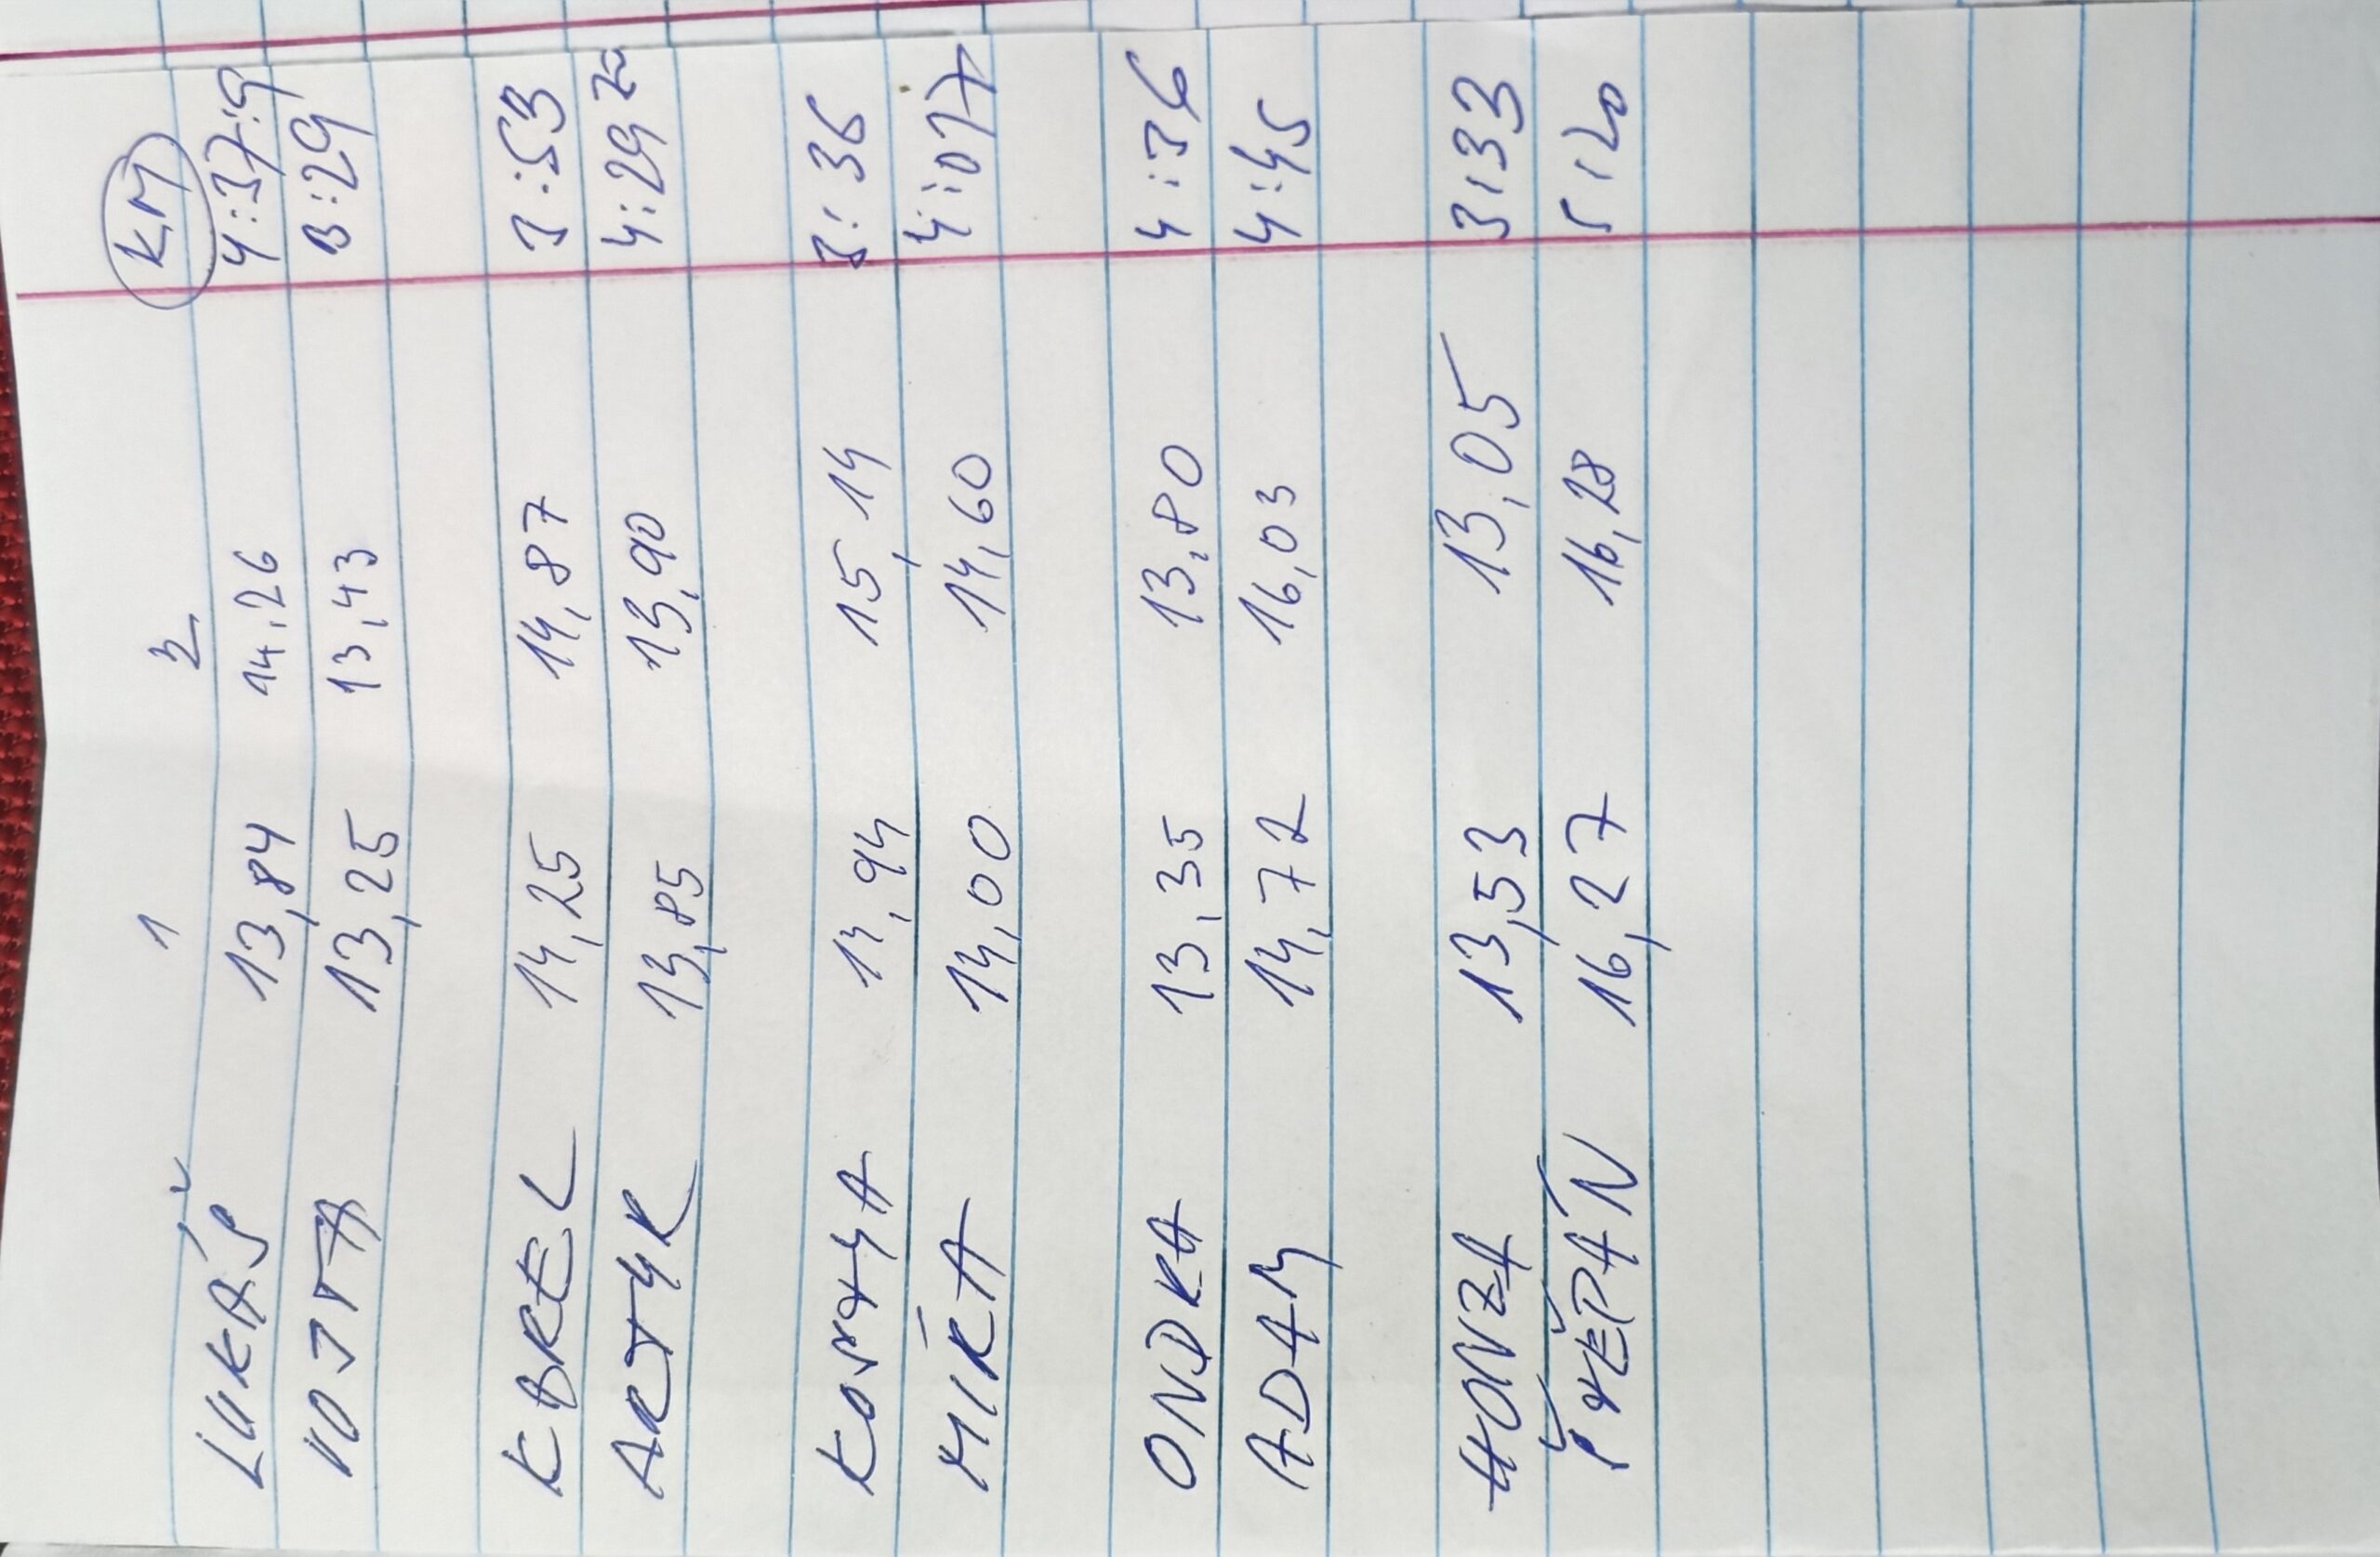 1 2 KM
LUKÁŠ 13,84 14,26 4:37:9
VOJTA 13,25 13,43 3:29
KBREL 14,25 14,87 3:53
ARTYR 13,85 13,90 4:29
KOSTYA 14,94 15,14 3:36
MÍRA 14,00 14,60 4:07
ONDRA 13,35 13,80 4:36
ADAM 14,72 16,03 4:45
HONZA 13,53 13,05 3:33
ŠTĚPÁN 16,27 16,28 5:20